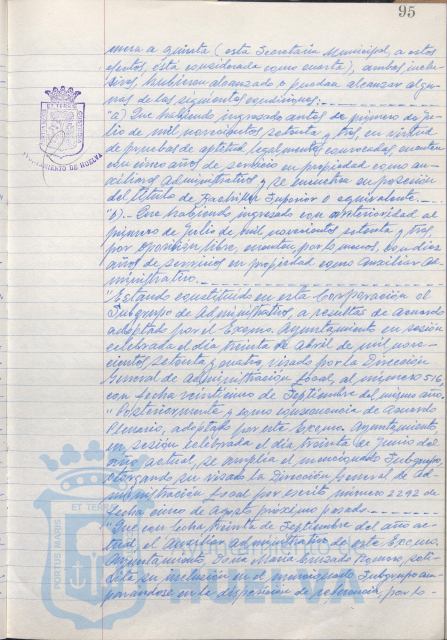 95
mera a quinta (esta Secretaría Municipal, a estos
efectos, está considerada como cuarta), ambas inclu-
sives, hubieran alcanzado o puedan alcanzar algu-
nas de las siguientes condiciones:
"a) Que habiendo ingresado antes de primero de Ju-
lio de mil novecientos setenta y tres, en virtud
de pruebas de aptitud, legalmente convocadas, cuenten
con cinco años de servicio en propiedad como au-
xiliares Administrativos y se encuentren en posesión
del título de Bachiller Superior o equivalente.
"b).- Que habiendo ingresado con anterioridad al
primero de Julio de mil novecientos setenta y tres,
por oposición libre, cuenten por lo menos, con diez
años de servicios en propiedad como Auxiliar Ad-
ministrativo.
"Estando constituido en esta Corporación el
Subgrupo de Administrativos, a resultas de acuerdo
adoptado por el Excmo. Ayuntamiento en sesión
celebrada el día treinta de Abril de mil nove-
cientos setenta y cuatro, visado por la Dirección
General de Administración Local, al número 516,
con fecha veintiuno de Septiembre del mismo año.
"Posteriormente y como consecuencia de acuerdo
Plenario, adoptado por este Excmo. Ayuntamiento
en sesión celebrada el día treinta de Junio del
año actual, se amplía el mencionado Subgrupo
otorgando su visado la Dirección General de Ad-
ministración Local por escrito número 2292 de
fecha cinco de Agosto próximo pasado.
"Que con fecha treinta de Septiembre del año ac-
tual, el Auxiliar Administrativo de este Excmo.
Ayuntamiento, Doña María Cruzado Romero, soli-
cita su inclusión en el mencionado Subgrupo am-
parándose en la disposición de referencia, por lo
AYUNTAMIENTO DE HUELVA
PORTUS MARIS
ET TERRE
Ayuntamiento de
HUELVA